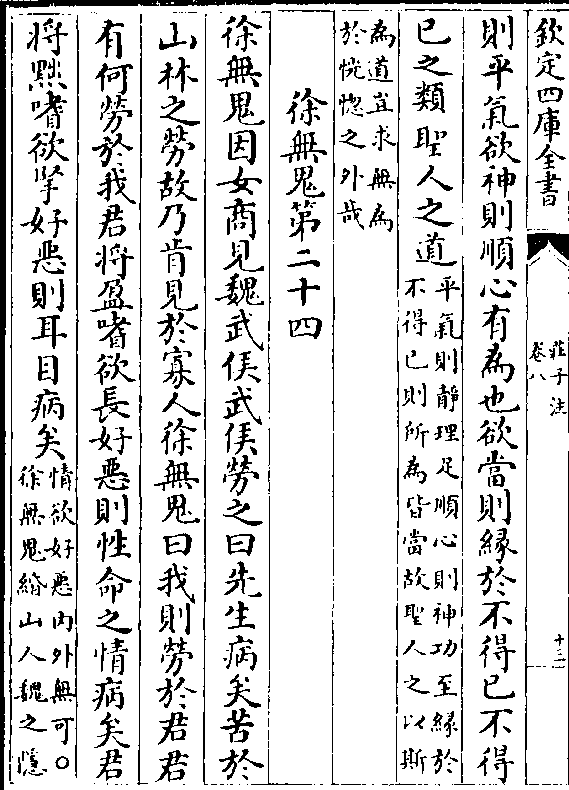 欽定四庫全書
莊子注
卷八
十三
則平氣欲神則順心有為也欲當則縁於不得已不得
已之類聖人之道
平氣則靜理足順心則神功至縁於
不得已則所為皆當故聖人之以斯
為道豈求無為
於恍惚之外哉
徐無鬼第二十四
徐無鬼因女商見魏武侯武侯勞之曰先生病矣苦於
山林之勞故乃肯見於寡人徐無鬼曰我則勞於君君
有何勞於我君將盈嗜欲長好惡則性命之情病矣君
將黜嗜欲掔好惡則耳目病矣
情欲好惡内外無可〇
徐無鬼緡山人魏之隱